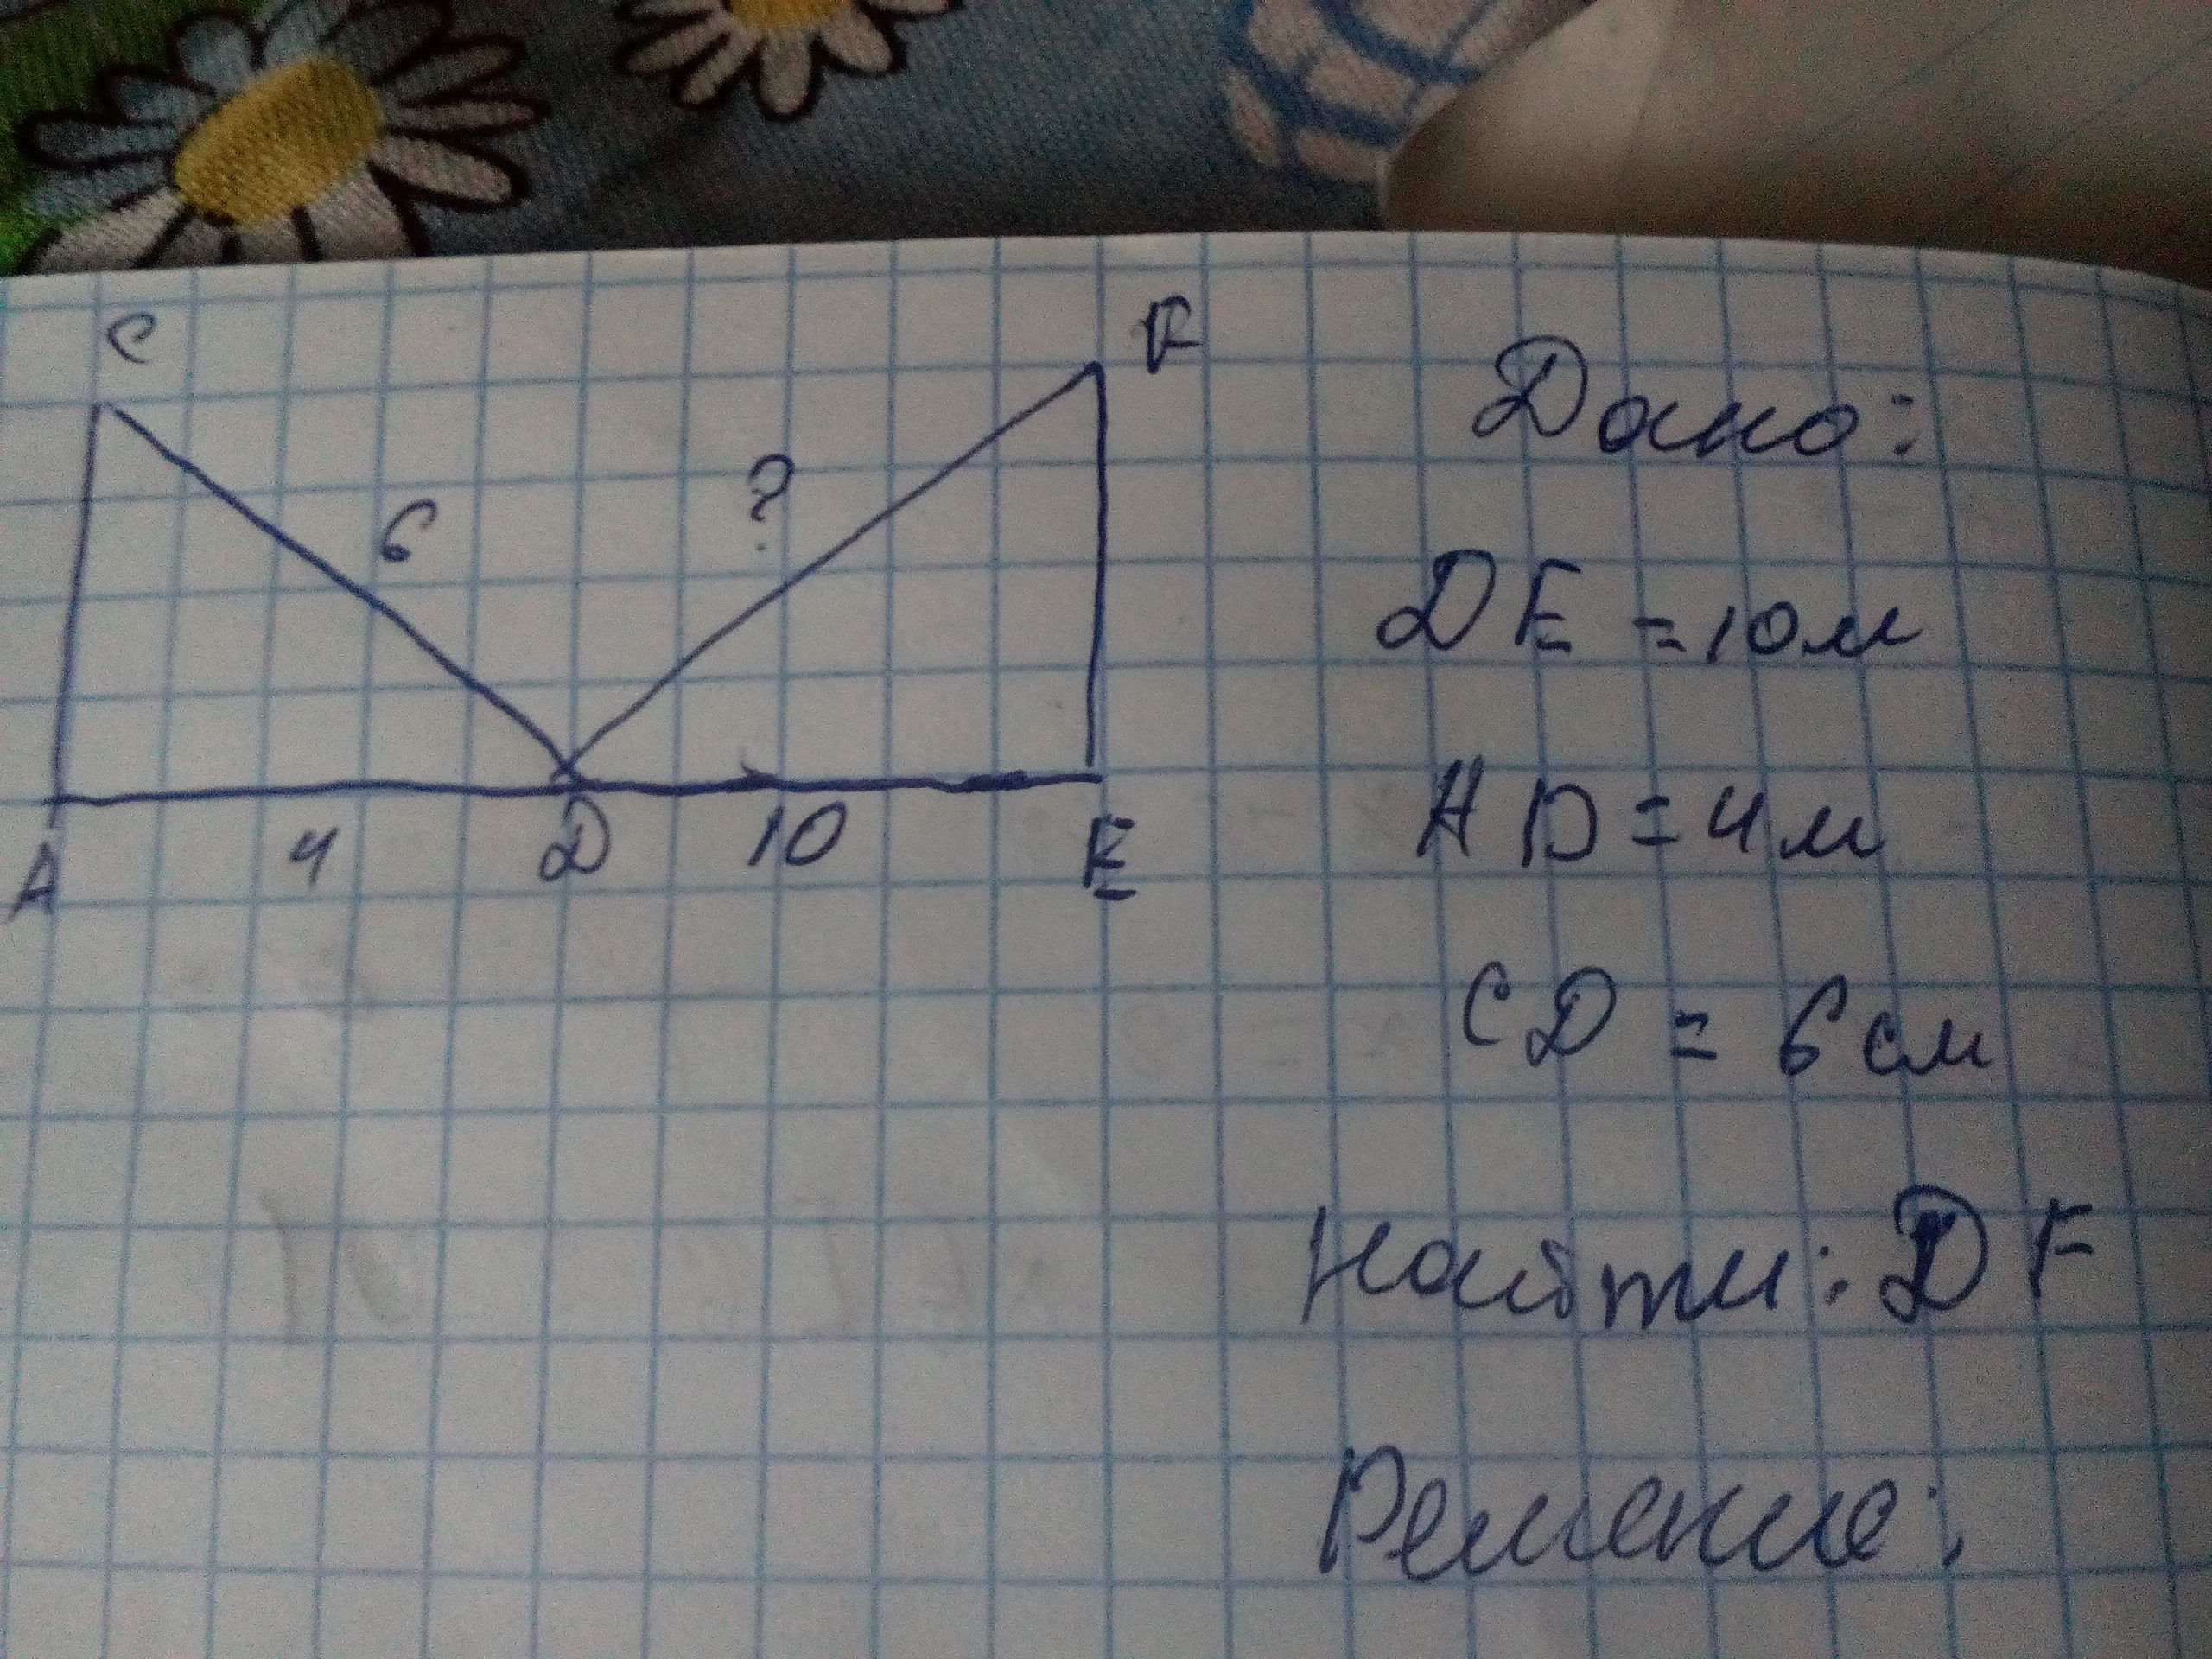 C
F
6
?
A
4
D
10
E
Дано:
DE = 10м
AD = 4м
CD = 6 см
Найти: DF
Решение: